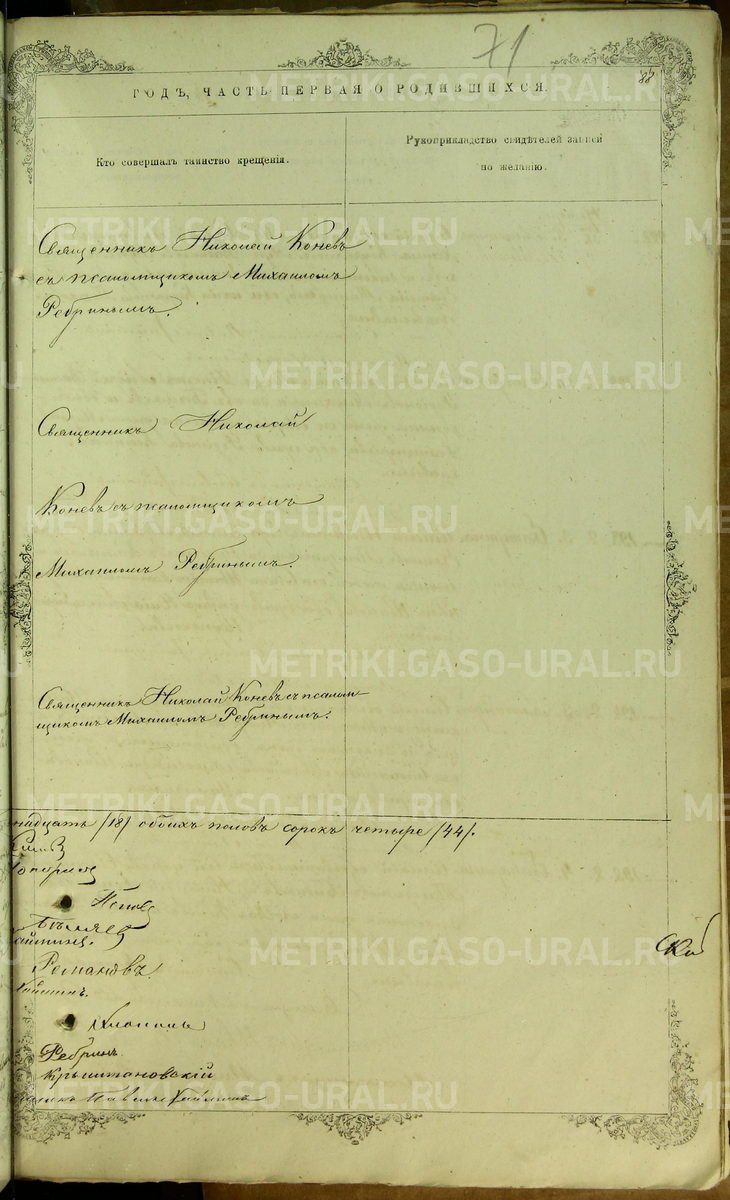 71
88
ГОДЪ, ЧАСТЬ ПЕРВАЯ О РОДИВШИХСЯ.
Кто совершалъ таинство крещенія.
Рукоприкладство свидѣтелей записи по желанію.
Священникъ Николай Коневъ
съ псаломщикомъ Михаиломъ
Ребринымъ.
Священникъ Николай
Коневъ съ псаломщикомъ
Михаиломъ Ребринымъ.
Священникъ Николай Коневъ съ псалом-
щикомъ Михаиломъ Ребринымъ.
надцать /18/ обоихъ половъ сорокъ четыре /44/.
Поповъ
Романовъ
Ребринъ
Крыштановскій
METRIKI.GASO-URAL.RU